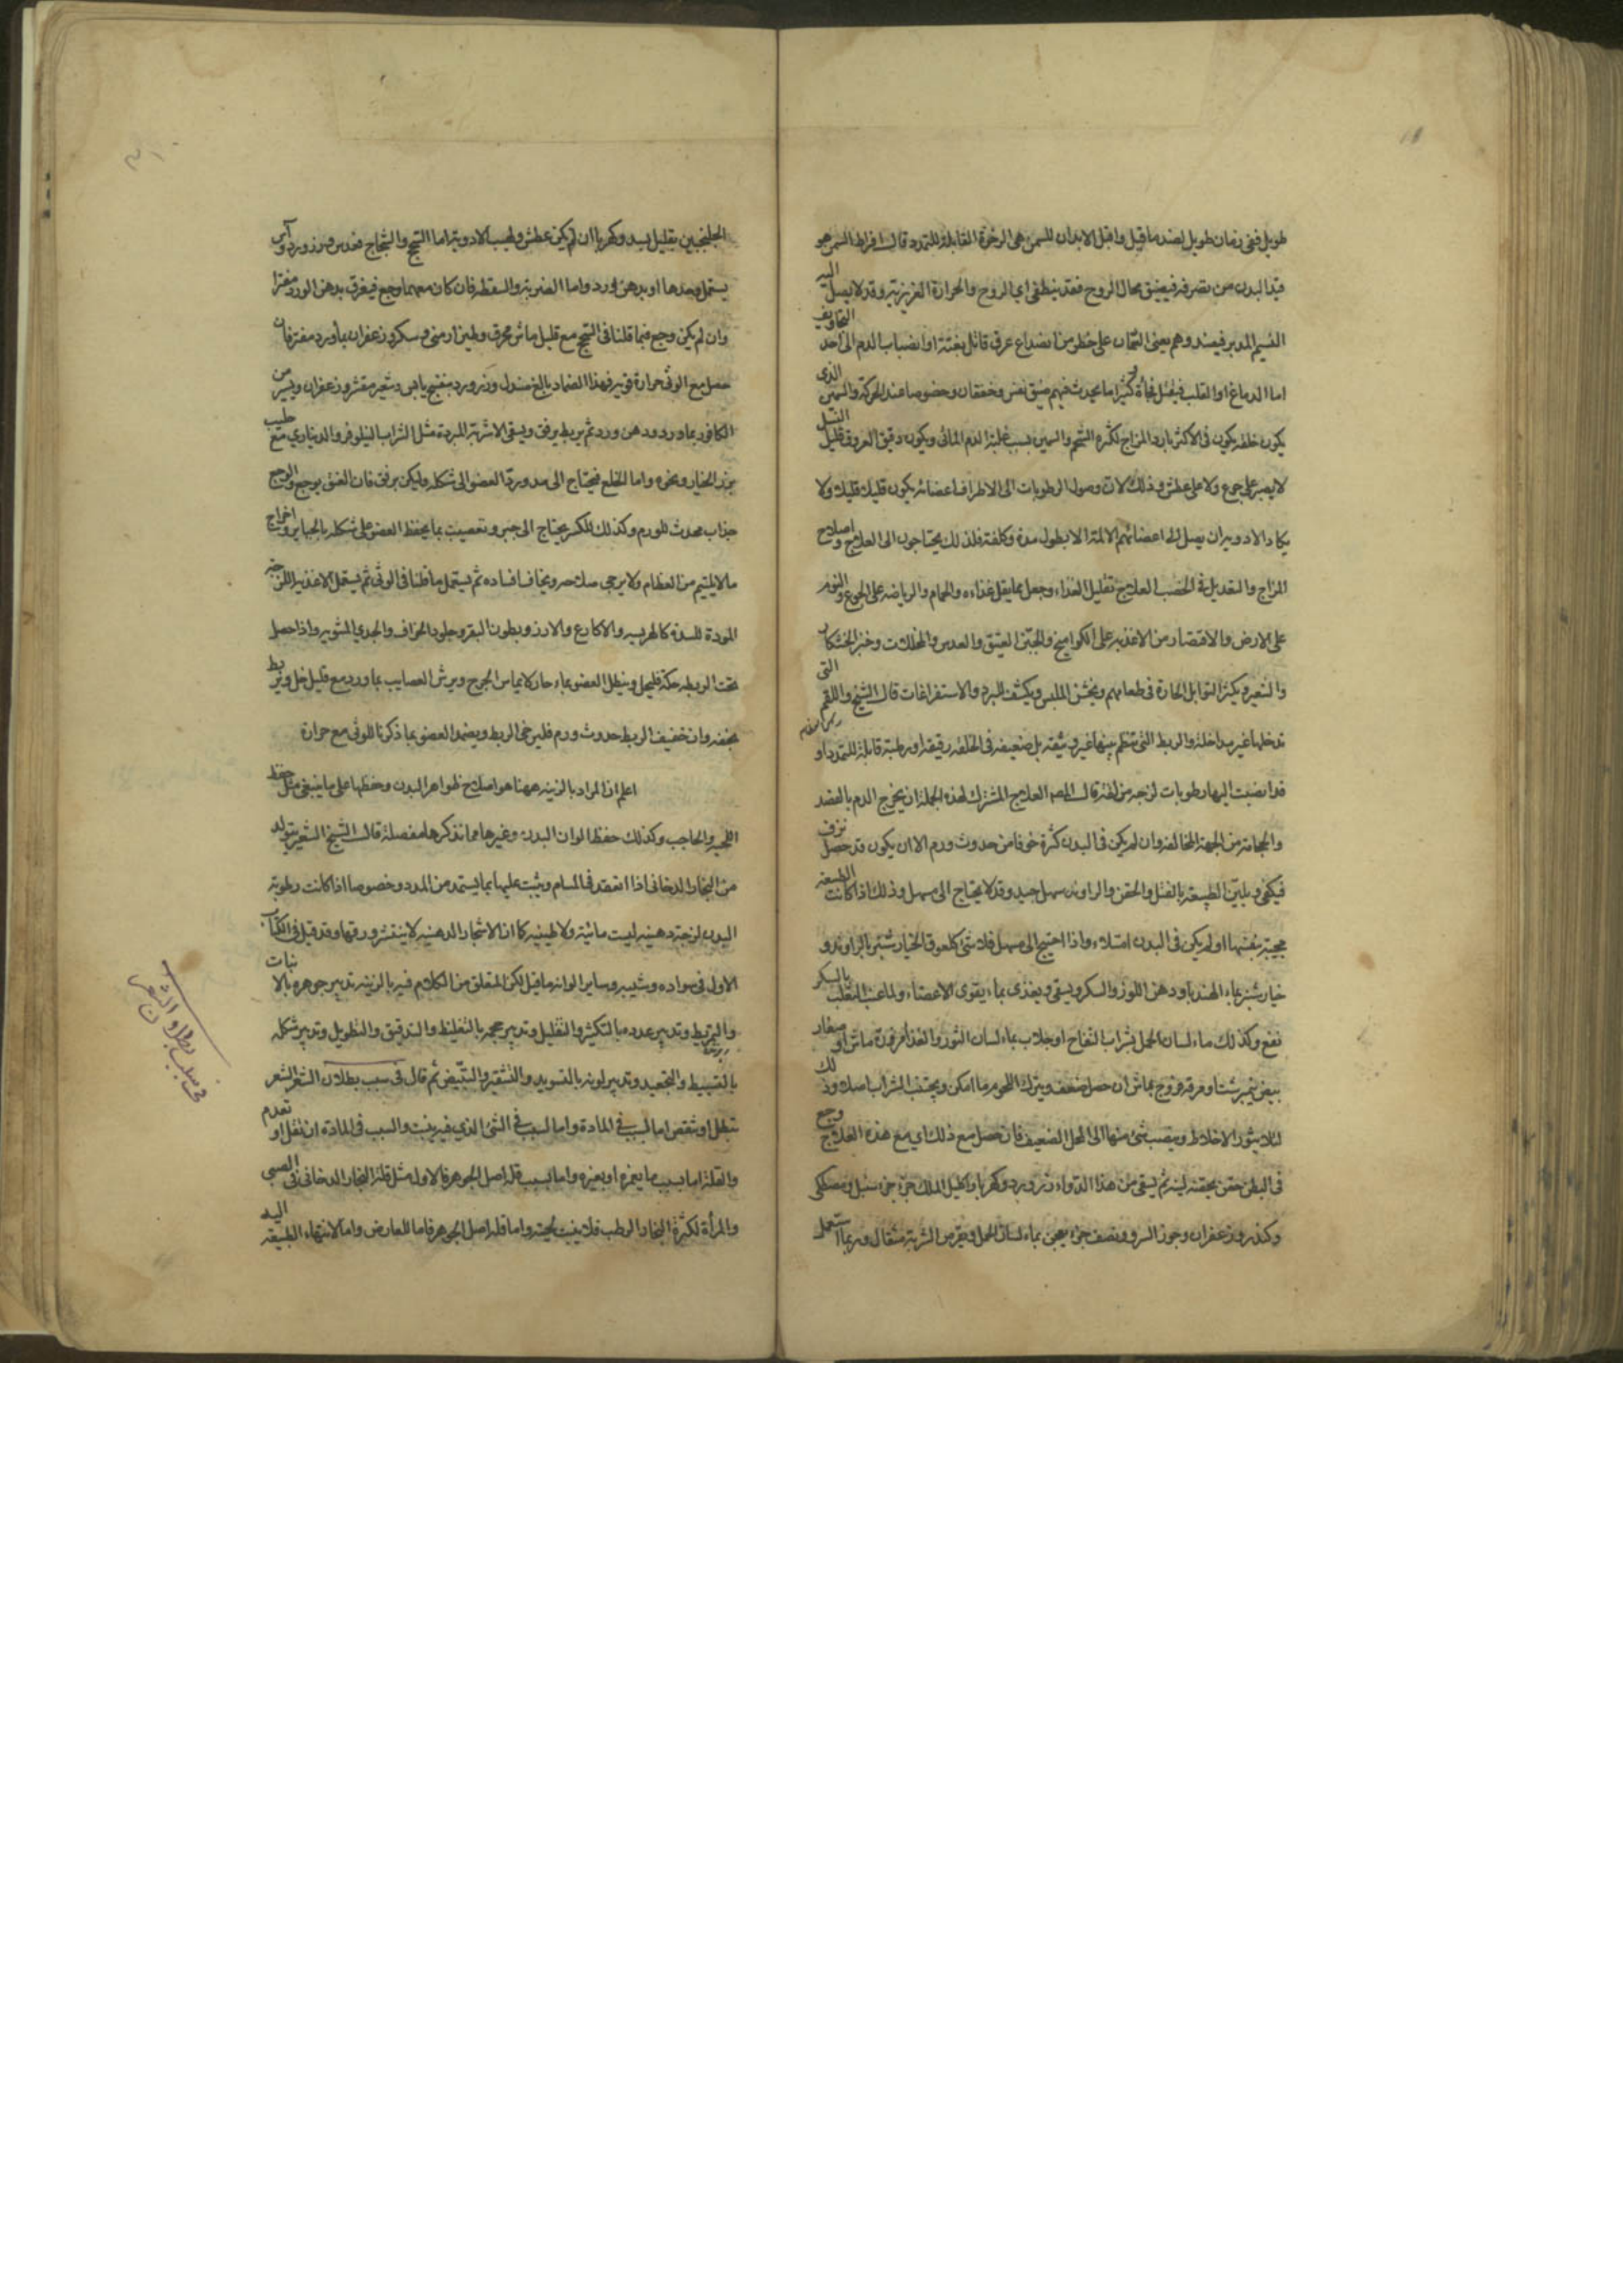 طويل ففى زمان طويل لضد ما قيل واقبل الابدان للسمن هى الرخوة القابلة للتمدد قال افراط السمن هو
قيد البدن من تصرفه فيضيق مجال الروح فقد ينطفى اي الروح والحرارة الغريزية وقد لا يصل اليه
النسيم المدبر فيفسد وهم يعنى السمان على خطر من انصداع عرق قاتل بغتة او انصباب الدم الى احد التجاويف
اما الدماغ او القلب فيقتل فجأة و كثيرا ما يحدث فيهم ضيق نفس وخفقان وخصوصا عند الحركة والسمين الذى
يكون خلقه يكون فى الاكثر بارد المزاج لكثرة الشحم والسمين بسبب غلبة الدم المائى ويكون دقيق العروق قليل
لا يصبر على جوع ولا على عطش وذلك لان وصول الرطوبات الى الاطراف اعضائه يكون قليلا قليلا ولا
يكاد الادوية ان يصل الى اعضائهم الالمة الا بطول مدة وكلفة فلذلك يحتاجون الى العلاج واصلاح
المزاج والتعديل فى الخصب العلاج تقليل الغذاء وجعل مما يقل غذاءه والحمام والرياضه على الجوع والنوم
على الارض والاقتصار من الاغذيه على الكواميخ والجبن العتيق والعدس والمخللات وخبز الخشكار
والشعير ويكثر التوابل الحارة فى طعامهم ويخشن الملبس ويكشف للبرد والاستفراغات قال الشيخ واللقم التى
تدخلها غير مداخلة والربط التى تنظم بينها غير وثيقة بل ضعيفة فى الخلقه رقيقة او رطبة قابلة للتمدد او
قد انصبت اليها رطوبات لزجه مزلقة قال المص العلاج المشترك لهذه الجملة ان يخرج الدم بالفصد
والحجامة من الجهة المخالفة وان لم يكن فى البدن كثرة خوفا من حدوث ورم الا ان يكون قد حصل نزف
فيكفى ويلين الطبيعة بالفتل والحقن والراوند مسهل جيد وقد لا يحتاج الى مسهل وذلك اذا كانت الطبيعة
مجيبة بنفسها او لم يكن فى البدن امتلاء واذا احتيج الى مسهل فلا شئ كلعوق الخيار شنبر بالراوند و
خيار شنبر بماء الهندبا ودهن اللوز والسكر ويسقى ويغذى بماء يقوى الاعضاء ولماء عنب الثعلب بالسكر
نفع وكذلك ماء لسان الحمل بشراب التفاح او جلاب بماء لسان الثور والغذاء مزورة ماش او صغار
بيض نيمبرشت او مرقة فروج بماش ان حصل ضعف ويترك اللحوم ما امكن ويجتنب الشراب اصلا وذلك
لئلا يثور الاخلاط وينصب شئ منها الى المحل الضعيف فان حصل مع ذلك اي مع هذه العلاج وجع
فى البطن حقن بحقنة لينة ثم يسقى من هذا الدواء زرورد وكهربا واكليل الملك جزء جزء سنبل ومصطكى
وكندر وزعفران وجوز السرو ونصف جزء يعجن بماء لسان الحمل ويقرص الشربة مثقال وربما استعمل
الجلنجبين بقليل بسد وكهربا ان لم يكن عطش ولهيب الادوية اما السحج والشجاج فعدس وزرورد وآس
يستعمل وحدها او بدهن ورد واما الضربة والسقطة فان كان معهما وجع فيغرق بدهن الورد مفترا
وان لم يكن وجع فما قلنا فى السحج مع قليل ماش محرق وطين ارمنى وسك وزعفران بماورد مفتر فان
حصل مع الوثى حرارة قوية فهذا الضماد بالغ صندل وزرورد بنفسج يابس دشعير مقشر وزعفران ويسير من
الكافور بماورد ودهن ورد ثم يربط برفق ويسقى الاشربة المبردة مثل الشراب النيلوفر والديناري مع حليب
بزر الخيار ونحوه واما الخلع فيحتاج الى مد ورد العضو الى شكله وليكن برفق فان العنف يوجع والوجع
جذاب محدث للورم وكذلك للكسر يحتاج الى جبر وتعصيب بما يحفظ العضو على شكله بالجباير واخراج
ما لا يلتيم من العظام ولا يرجى صلاحه ويخاف افساده ثم يستعمل ما قلنا فى الوثى ثم يستعمل الاغذيه اللزجة
المولدة للسدة كالهريسه والاكارع والارز وبطون البقر وجلود الخراف والجدي المشويه واذا حصل
تحت الربط حكة فليحل وينطل العضو بماء حار كا يماس الجرح ويرش العصايب بماورد مع قليل خل ويربط
بخفه وان خفيف الربط حدوث ورم فليرخى الربط ويضمد العضو بما ذكرنا للوثى مع حرارة
اعلم ان المراد بالزينه ههنا هو اصلاح ظواهر البدن وحفظها على ما ينبغى مثل حفظ
اللحيه والحاجب وكذلك حفظ الوان البدن وغيرها مما نذكرها مفصلة قال الشيخ الشعر يتولد
من البخار الدخانى اذا انعقد فى المسام وينبت عليها بما يستمد من المدد وخصوصا اذا كانت رطوبة
البدن لزجة دهنيه ليست مائية ولا طينيه كما ان الاشجار الدهنيه لا ينتثر ورقها وقد قيل فى الكتاب
الاول فى سواده وشيبه وساير الوانه ما قيل لكن المتعلق من الكلام فيه بالزينه تدبير جوهره بالانبات
والتمريط وتدبير عدده بالتكثير والتقليل وتدبير حجمه بالتغليظ والتدقيق والتطويل وتدبير شكله
بالتسبيط والتجعيد وتدبير لونه بالتسويد والتشقير والتبييض ثم قال فى سبب بطلان الشعر الشعر
تبطل او تنقص اما لسبب فى المادة واما لسبب فى الشئ الذي فيه ينبت والسبب فى المادة ان تقل او تعدم
والقلة اما بسبب ما يغمره او بغيره واما لسبب قلة اصل الجوهر فالاول مثل قلة البخار الدخانى فى الصبى
والمرأة لكثرة البخار الرطب فلا ينبت لحيته واما قلة اصل الجوهر فاما للعارض واما لانتهاء الطبيعة اليه
فى سبب بطلان الشعر